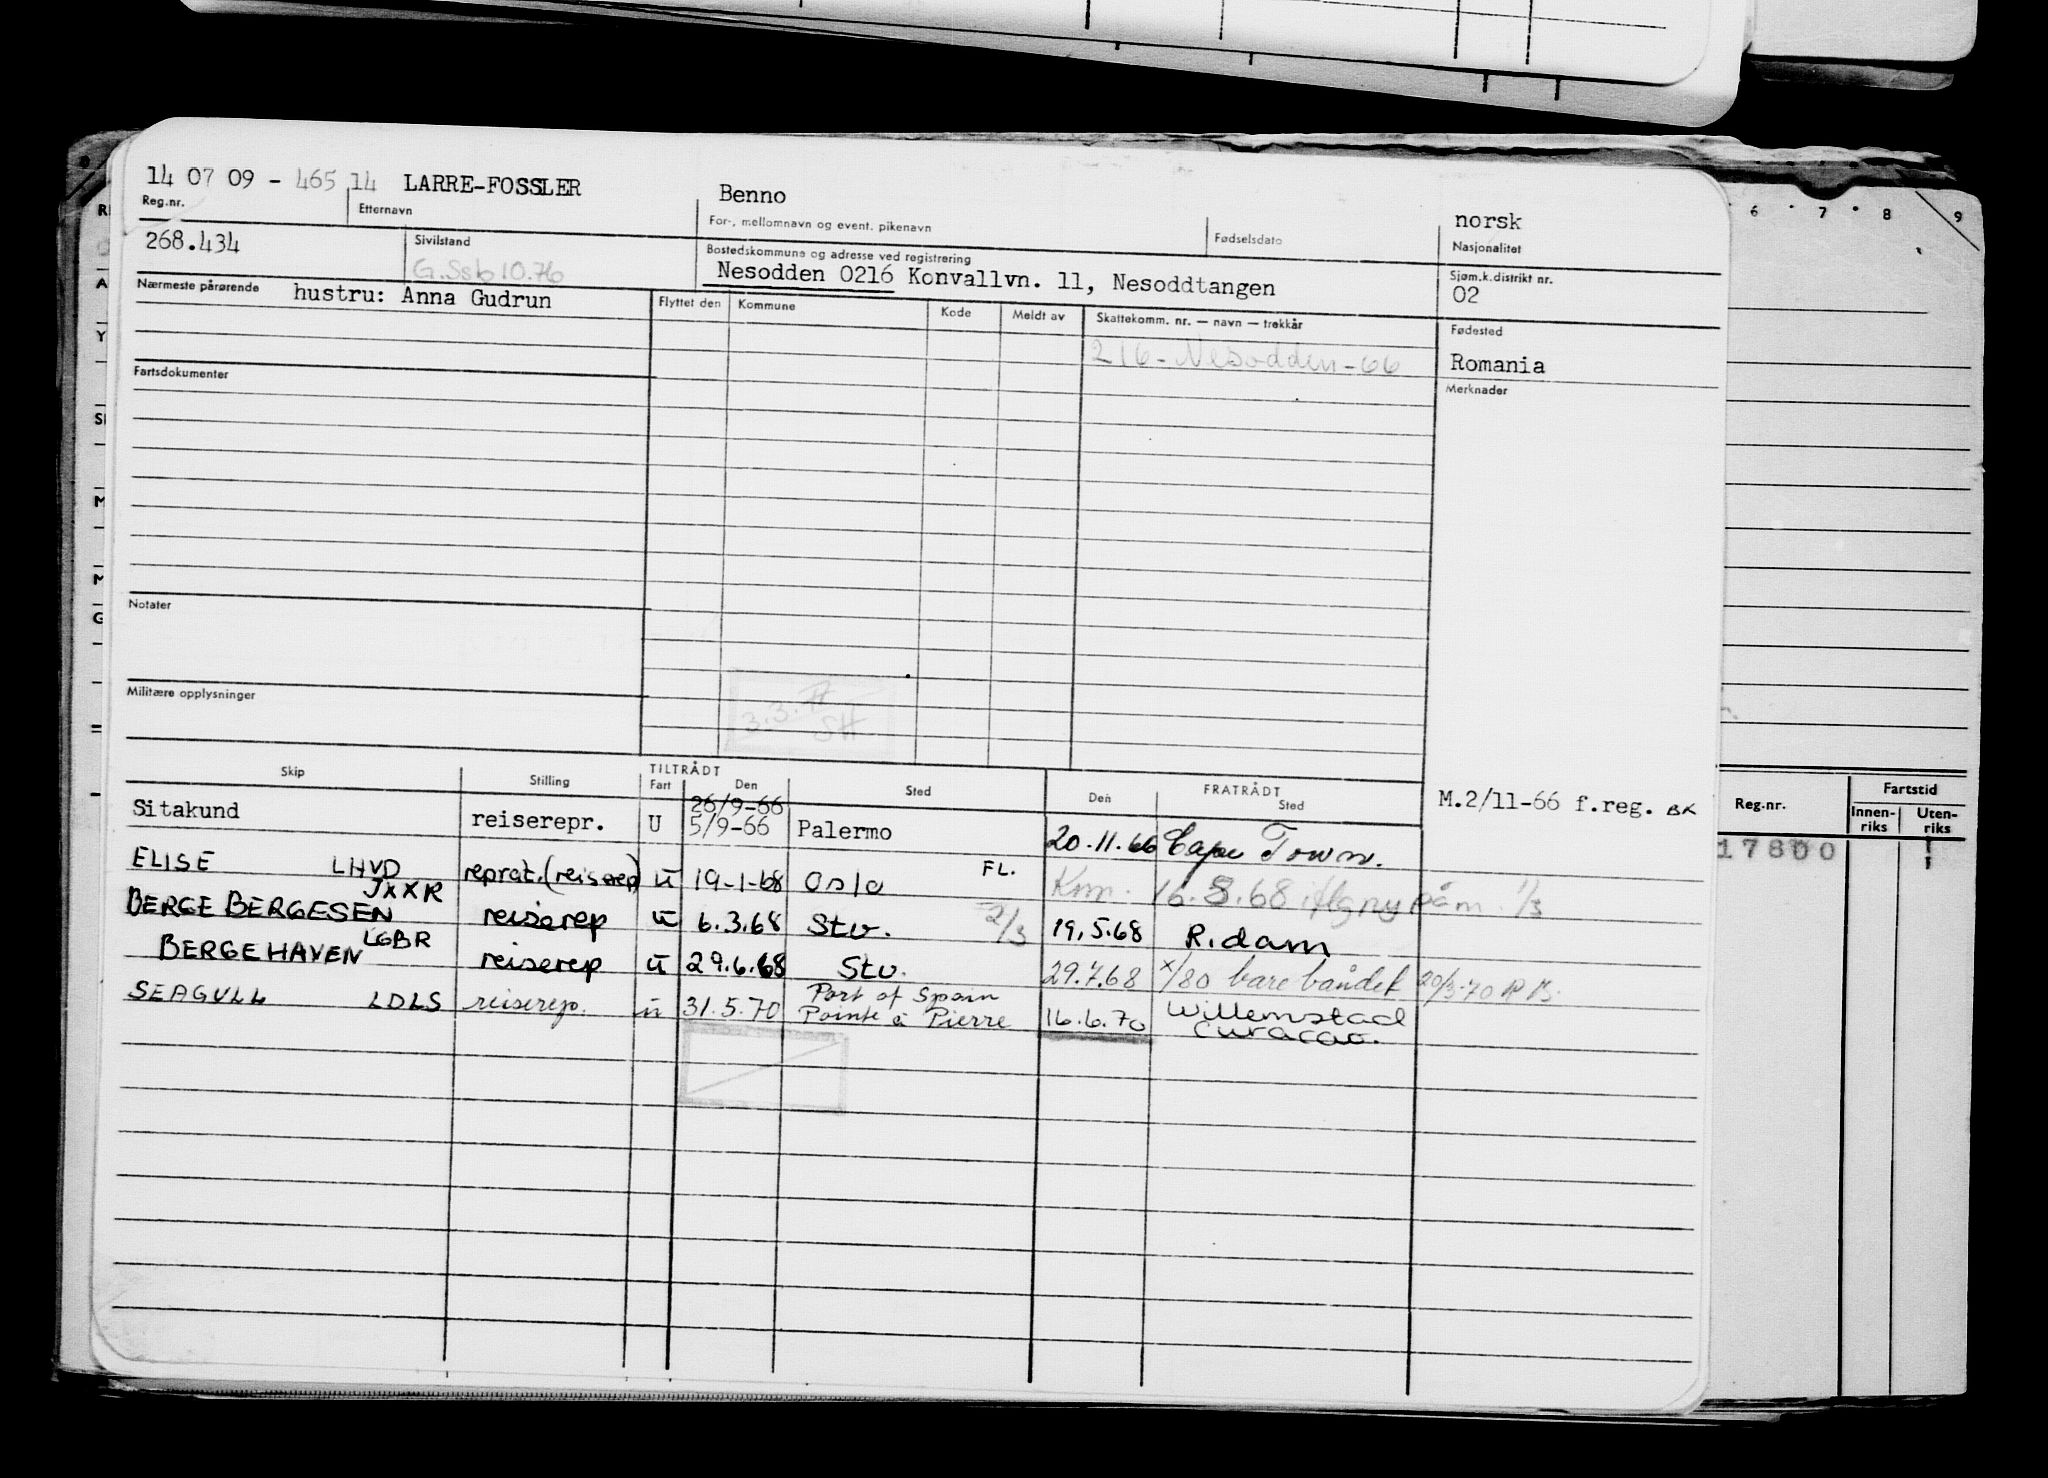 14 07 09 - 465 14 LARRE-FOSSLER Benno norsk
Reg.nr. Etternavn For-, mellomnavn og event. pikenavn Fødselsdato Nasjonalitet
268.434 Sivilstand Bostedskommune og adresse ved registrering Sjøm.k.distrikt nr.
G.Ssb 10.76 Nesodden 0216 Konvallvn. 11, Nesoddtangen 02
Nærmeste pårørende hustru: Anna Gudrun Flyttet den Kommune Kode Meldt av Skattekomm. nr. — navn — trekkår Fødested
216-Nesodden-66 Romania
Fartsdokumenter Merknader
Notater
Militære opplysninger
3.3.
SH
Skip Stilling TILTRÅDT Fart Den Sted Den FRATRÅDT Sted
26/9-66
Sitakund reiserepr. U 5/9-66 Palermo 20.11.66 Cape Town. M.2/11-66 f.reg. BK
ELISE LHVD reprat.(reiserep) U 19-1-68 Oslo FL.
BERGE BERGESEN JXXR reiserep U 6.3.68 Stv. 2/3 19.5.68 R.dam
BERGEHAVEN LGBR reiserep U 29.6.68 Stv. 29.7.68 x/80 bare båndet 20/3-70
SEAGULL LDLS reiserep. U 31.5.70 Port of Spain
Pointe à Pierre 16.6.70 Willemstad
Curacao.
6 7 8 9
Reg.nr. Fartstid
Innen-riks Uten-riks
17800